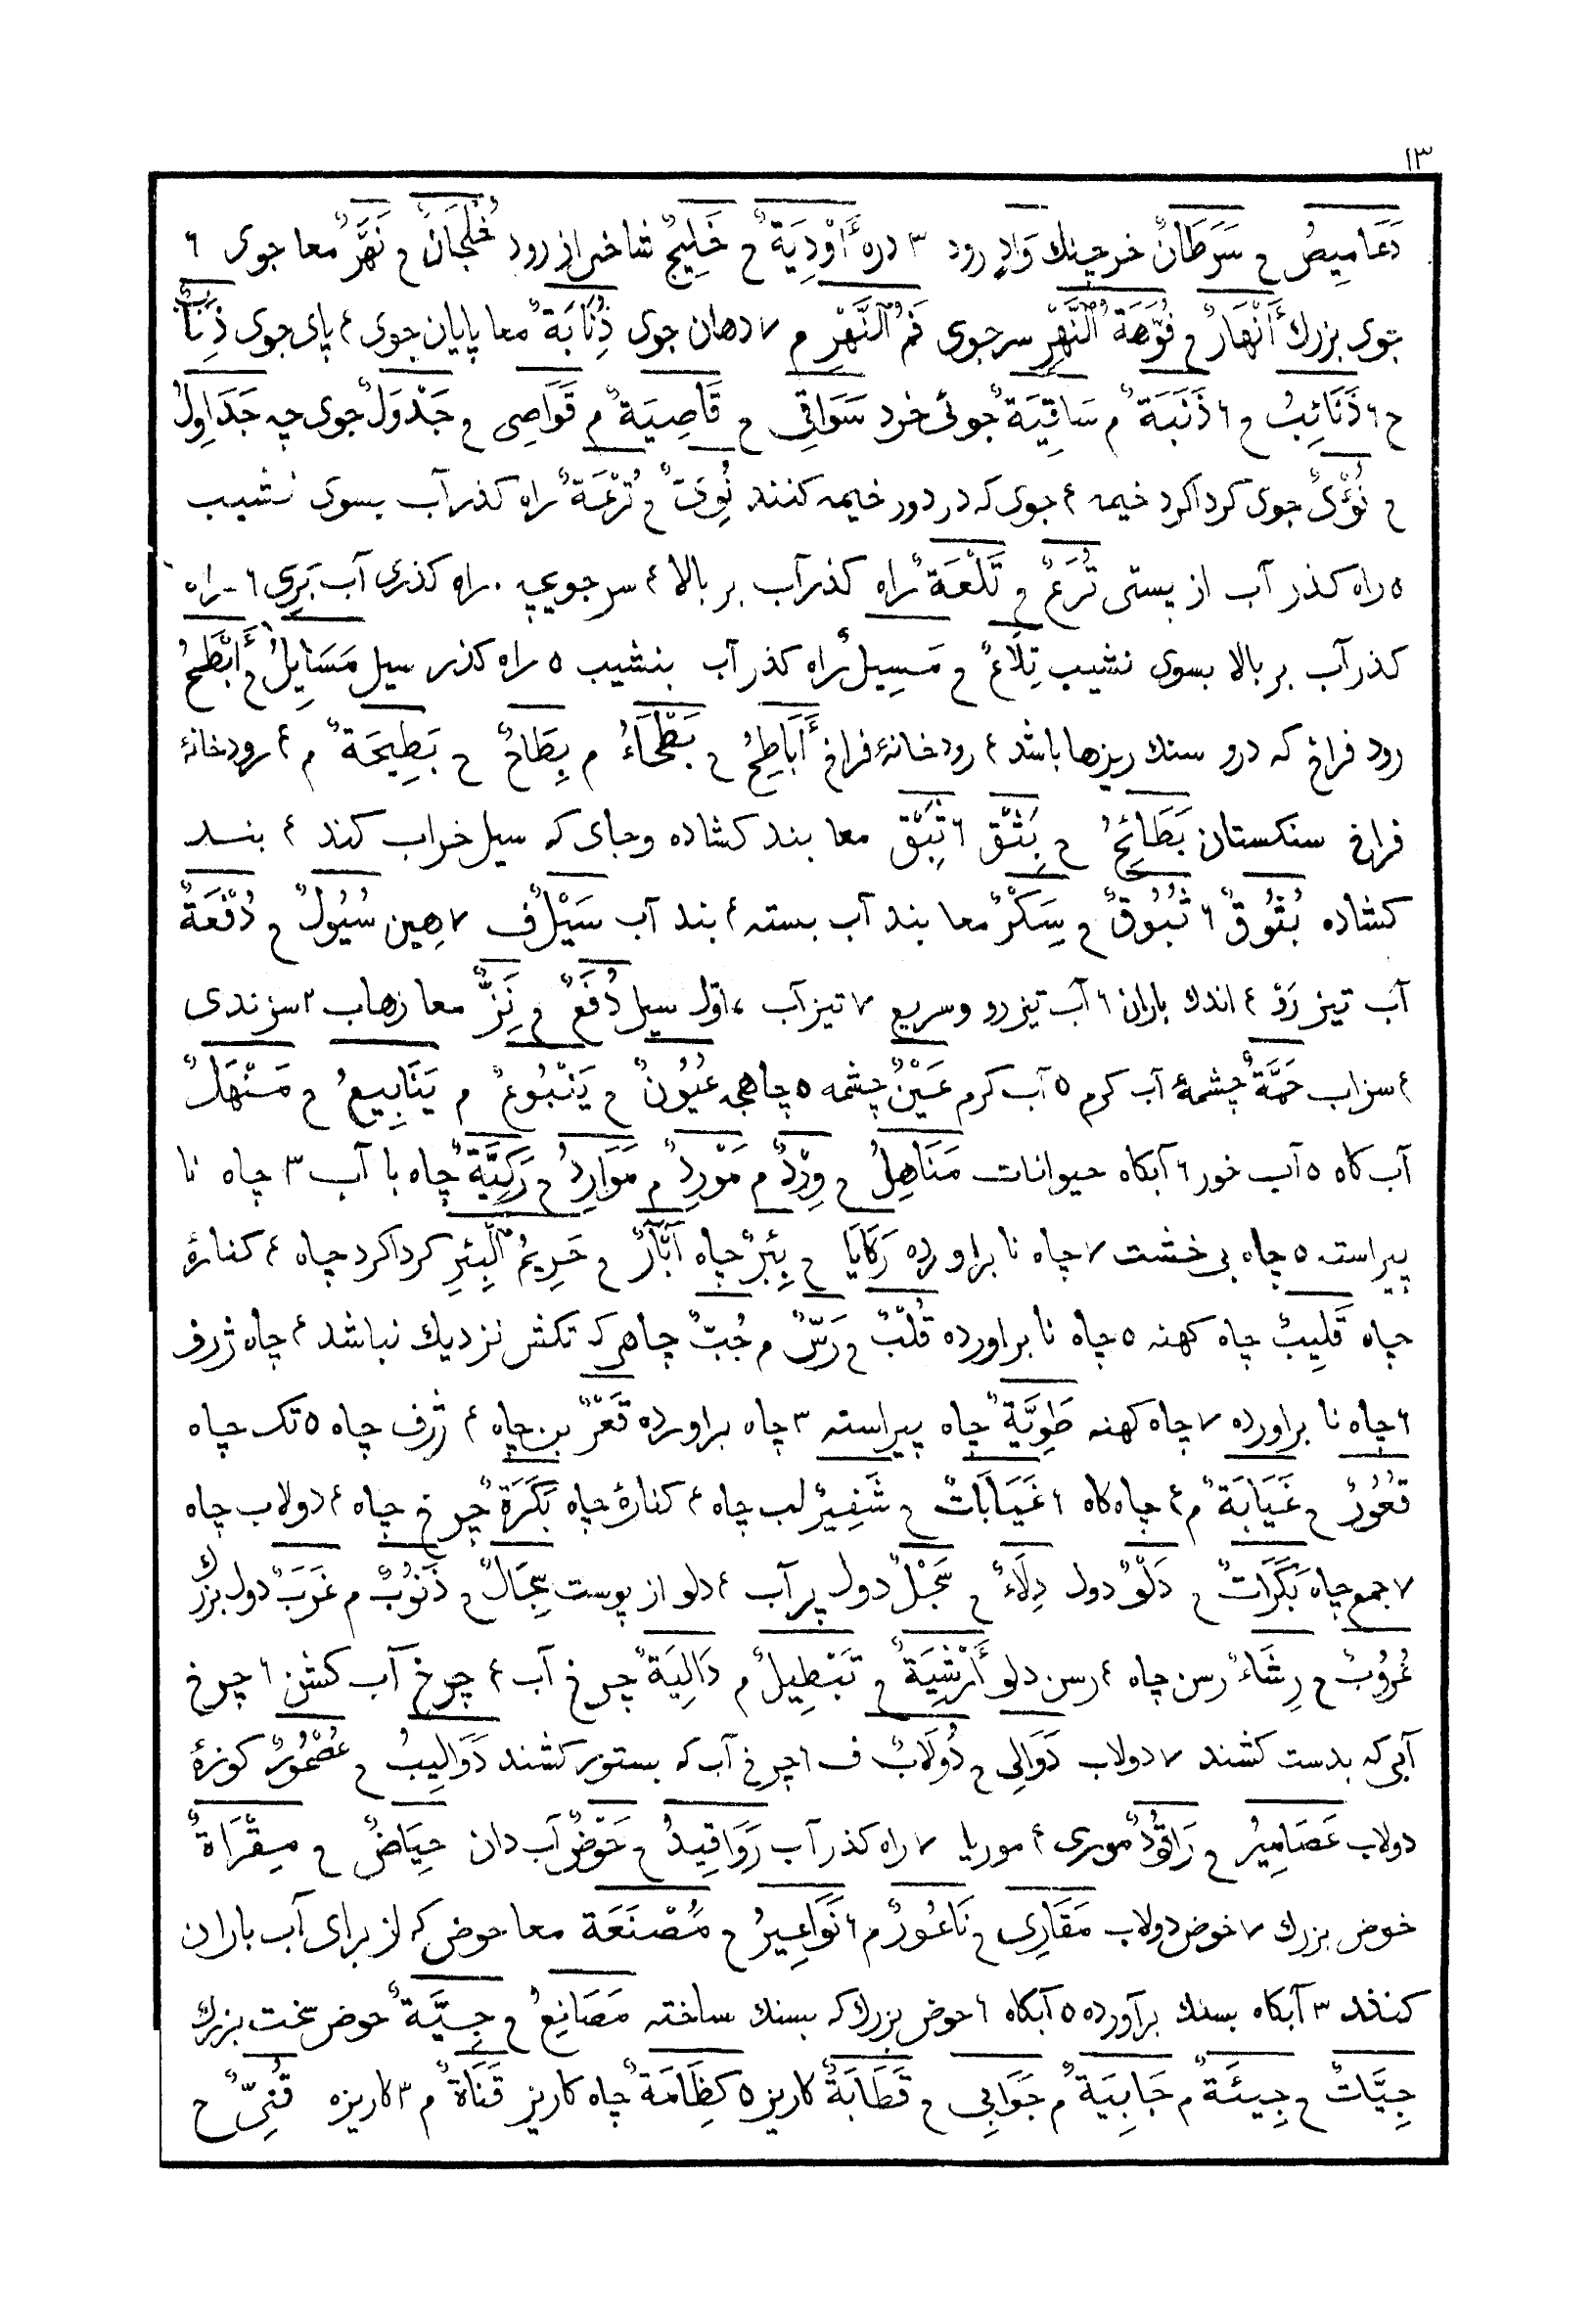 ١٣
دَعَامِيصُ ۾ سَرَطَانٌ خرچنك وَادٍ رود ٣ دره أَوْدِيَةٌ ۾ خَلِيجٌ شاخى از رود خُلْجَانٌ ۾ نَهَرٌ معا جوى ٦
جوى بزرك أَنْهَارٌ ۾ فُوَّهَةُ النَّهْرِ سر جوى فَمُ النَّهْرِ م ٧ دهان جوى ذُنَابَةٌ معا پايان جوى ۴ پاى جوى ذِنَابٌ
ح ٦ ذَنَائِبُ ۾ ٦ ذَنَبَةٌ م سَاقِيَةٌ جوئى خرد سَوَاقِى ۾ قَاصِيَةٌ م قَوَاصِى ۾ جَدْوَلٌ جوى چه جَدَاوِلُ
۾ نُؤْىٌ جوى كرداكرد خيمه ۴ جوى كه در دور خيمه كنند نُوِىٌّ ۾ تُرْعَةٌ راه كذر آب بسوى نشيب
٥ راه كذر آب از پستى تُرَعٌ ۾ تَلْعَةٌ راه كذر آب بر بالا ۴ سر جويچه . راه كذرى آب بَرِى ٦ راه
كذر آب بر بالا بسوى نشيب تِلَاعٌ ۾ مَسِيلٌ راه كذر آب بنشيب ٥ راه كذر سيل مَسَايِلُ ۾ أَبْطَحُ
رود فراخ كه درو سنك ريزها باشد ۴ رود خانهٔ فراخ أَبَاطِحُ ۾ بَطْحَاءُ م بِطَاحٌ ۾ بَطِيحَةٌ م ۴ رود خانهٔ
فراخ سنكستان بَطَائِحُ ۾ بِثْقٌ ٦ ثِبْقٌ معا بند كشاده وجاى كه سيل خراب كند ۴ بند
كشاده بُثُوقٌ ٦ ثُبُوقٌ ۾ سِكْرٌ معا بند آب بسته ۴ بند آب سَيْلٌ ف ٧ هين سُيُولٌ ۾ دُفْعَةٌ
آب تيز رَوْ ۴ اندك باران ٦ آب تيز رو وسريع ٧ تيز آب ، اوّل سيل دُفَعٌ ۾ نَزٌّ معا زهاب ٣ سزندى
۴ سزاب حَمَّةٌ چشمهٔ آب كرم ٥ آب كرم عَيْنٌ چشمه ٥ چاهچه عُيُونٌ ۾ يَنْبُوعٌ م يَنَابِيعُ ۾ مَنْهَلٌ
آب كاه ٥ آب خور ٦ آبكاه حيوانات مَنَاهِلُ ۾ وِرْدٌ م مَوْرِدٌ م مَوَارِدُ ۾ رَكِيَّةٌ چاه با آب ٣ چاه نا
پيراسته ٥ چاه بى خشت ٧ چاه نا براورده رَكَايَا ۾ بِئْرٌ چاه آبَآرٌ ۾ حَرِيمُ الْبِئْرِ كرداكرد چاه ۴ كنارهٔ
چاه قَلِيبٌ چاه كهنه ٥ چاه نا براورده قُلْبٌ ۾ رَسٌّ م جُبٌّ چاهى كه تكش نزديك نباشد ۴ چاه ژرف
٦ چاه نا براورده ٧ چاه كهنه طَوِيَّةٌ چاه پيراسته ٣ چاه براورده قَعْرٌ بن چاه ۴ ژرف چاه ٥ تك چاه
قُعُورٌ ۾ غَيَابَةٌ م ۴ چاه كاه ٦ غَيَابَاتٌ ۾ شَفِيرٌ لب چاه ۴ كنارهٔ چاه بَكَرَةٌ چرخ چاه ۴ دولاب چاه
٧ جمع چاه بَكَرَاتٌ ۾ دَلْوٌ دول دِلَاءٌ ۾ سَجْلٌ دول پر آب ۴ دلو از پوست سِجَالٌ ۾ ذَنُوبٌ م غَرَبٌ دول بزرك
غُرُوبٌ ۾ رِشَاءٌ رسن چاه ۴ رسن دلو أَرْشِيَةٌ ۾ تَبْطِيلٌ م دَالِيَةٌ چرخ آب ۴ چرخ آب كش ٦ چرخ
آبى كه بدست كشند ٧ دولاب دَوَالِى ۾ دُولَابٌ ف ٦ چرخ آب كه بستور كشند دَوَالِيبُ ۾ عُصْمُورٌ كوزهٔ
دولاب عَصَامِيرُ ۾ رَاقُودٌ مورى ۴ موريا ٧ راه كذر آب رَوَاقِيدُ ۾ حَوْضٌ آب دان حِيَاضٌ ۾ مِقْرَاةٌ
خوض بزرك ٧ خوض دولاب مَقَارِى ۾ نَاعُورٌ م ٦ نَوَاعِيرُ ۾ مُصْنَعَة معا حوض كه از براى آب باران
كنند ٣ آبكاه بسنك برآورده ٥ آبكاه ٦ حوض بزرك كه بسنك ساخته مَصَانِعُ ۾ جِيَّةٌ حوض سخت بزرك
جِيَّاتٌ ۾ جِيئَةٌ م جَابِيَةٌ م جَوَابِى ۾ قَطَابَةٌ كاريز ٥ كِظَامَةٌ چاه كاريز قَنَاةٌ م ٣ كاريزه قُنِىٌّ ح